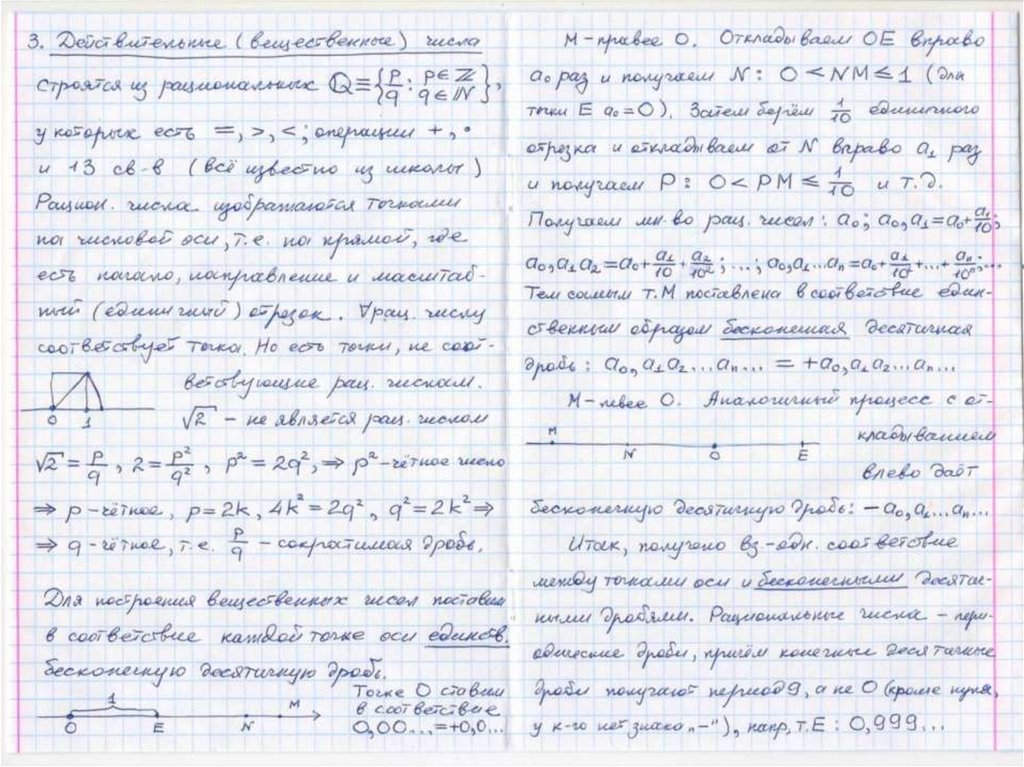 3. Действительные (вещественные) числа
строятся из рациональных ℚ≡{p/q : p∈ℤ, q∈ℕ},
у которых есть =, >, <; операции +, •
и 13 св-в (всё известно из школы)
Рацион. числа изображаются точками
на числовой оси, т.е. на прямой, где
есть начало, направление и масштаб-
ный (единичный) отрезок. ∀рац. числу
соответствует точка. Но есть точки, не соот-
ветствующие рац. числам.
0 1
√2 – не является рац. числом
√2 = p/q, 2 = p²/q², p² = 2q², ⇒ p² – чётное число
⇒ p – чётное, p = 2k, 4k² = 2q², q² = 2k² ⇒
⇒ q – чётное, т.е. p/q – сократимая дробь.
Для построения вещественных чисел поставим
в соответствие каждой точке оси единств.
бесконечную десятичную дробь.
1
O E N M
Точке O ставим
в соответствие
0,00... = +0,0...
M – правее O. Откладываем OE вправо
a₀ раз и получаем N: 0 < NM ≤ 1 (для
точки E a₀=0). Затем берём 1/10 единичного
отрезка и откладываем от N вправо a₁ раз
и получаем P: 0 < PM ≤ 1/10 и т.д.
Получаем мн-во рац. чисел: a₀; a₀,a₁ = a₀ + a₁/10;
a₀,a₁a₂ = a₀ + a₁/10 + a₂/10²; ...; a₀,a₁...aₙ = a₀ + a₁/10 + ... + aₙ/10ⁿ; ...
Тем самым т. M поставлена в соответствие един-
ственным образом бесконечная десятичная
дробь: a₀,a₁a₂...aₙ... = +a₀,a₁a₂...aₙ...
M – левее O. Аналогичный процесс с от-
M N O E
кладыванием
влево даёт
бесконечную десятичную дробь: –a₀,a₁...aₙ...
Итак, получено вз-одн. соответствие
между точками оси и бесконечными десятич-
ными дробями. Рациональные числа – пери-
одические дроби, причём конечные десятичные
дроби получают период 9, а не 0 (кроме нуля,
у к-го нет знака „–"), напр, т. E : 0,999...